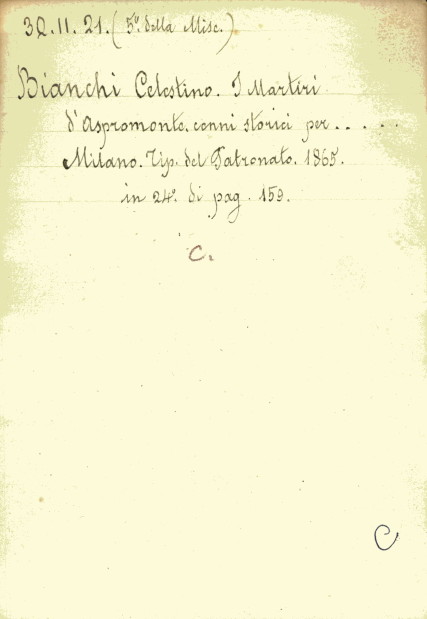 3Q.II.21.(5º. della Misc.)
Bianchi Celestino. I Martiri
d'Aspromonte. cenni storici per . . . . .
Milano. Tip. del Patronato. 1865.
in 24º. di pag. 159.
C.
C